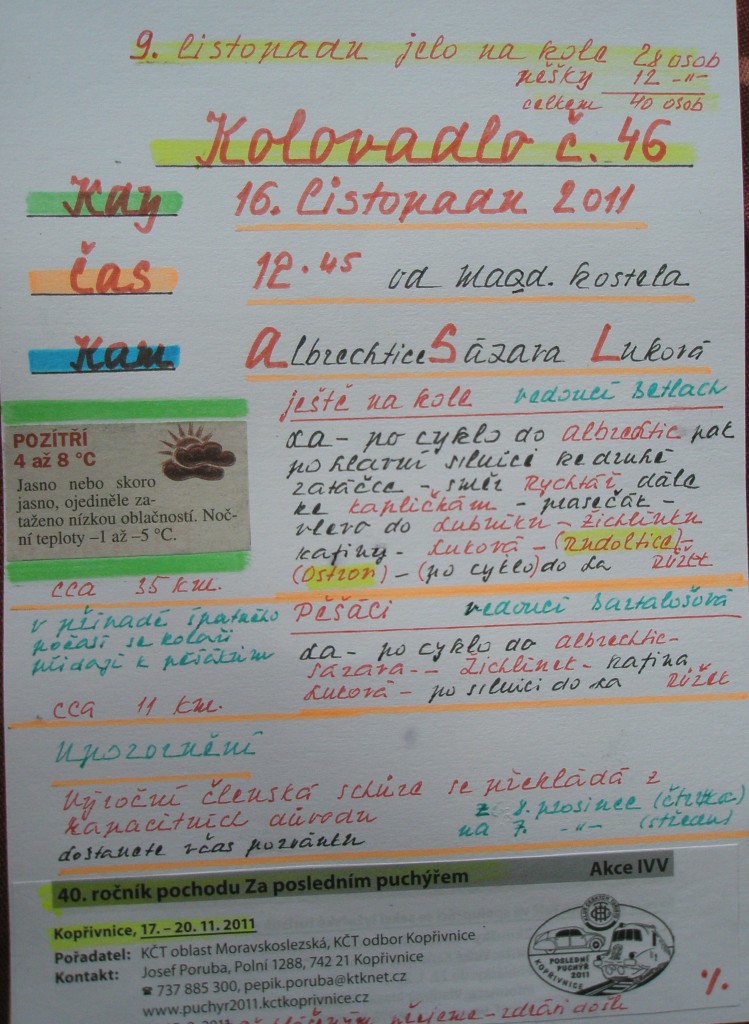 9. listopadu jelo na kole 28 osob
pěšky 12 -"-
celkem 40 osob
Kolovadlo č. 46
Kdy 16. listopadu 2011
Čas 12.45 od Magd. kostela
Kam Albrechtice Sázava Luková
ještě na kole vedoucí Betlach
POZÍTŘÍ
4 až 8 °C
Jasno nebo skoro
jasno, ojediněle za-
taženo nízkou oblačností. Noč-
ní teploty –1 až –5 °C.
La - po cyklo do Albrechtic pak
po hlavní silnici ke druhé
zatáčce - směr Rychtář dále
ke kapličkám - prasečák -
vlevo do Lubníku - Žichlínku
kafíny - Luková - (Rudoltice) -
(Ostrov) - (po cyklo) do La Růžek
cca 35 km.
v případě špatného
počasí se kolaři
přidají k pěšákům
cca 11 km.
Pěšáci vedoucí Bartalošová
La - po cyklo do Albrechtic -
Sázava - Žichlínek - kafina
Luková - po silnici do La Růžek
Upozornění
Výroční členská schůze se překládá z
kapacitních důvodu z 8. prosince (čtvrtka)
na 7. -"- (středu)
dostanete včas pozvánku
40. ročník pochodu Za posledním puchýřem Akce IVV
Kopřivnice, 17. – 20. 11. 2011
Pořadatel: KČT oblast Moravskoslezská, KČT odbor Kopřivnice
Kontakt: Josef Poruba, Polní 1288, 742 21 Kopřivnice
☎ 737 885 300, pepik.poruba@ktknet.cz
www.puchyr2011.kctkoprivnice.cz
POSLEDNÍ
PUCHÝŘ
2011
KOPŘIVNICE
•/.
přejeme - zdraví došk